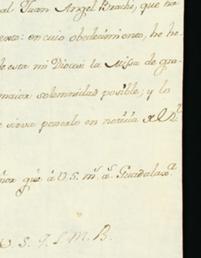 al Juan Angel Brache, que ha
exto: en cuio obedecimiento, he he-
de esta mi Diocesi la Misa de gra-
maior solemnidad posible; y lo
se sirva ponerlo en noticia
que à V. S. m.s a.s Guadalax.a
V S. I L M. B.